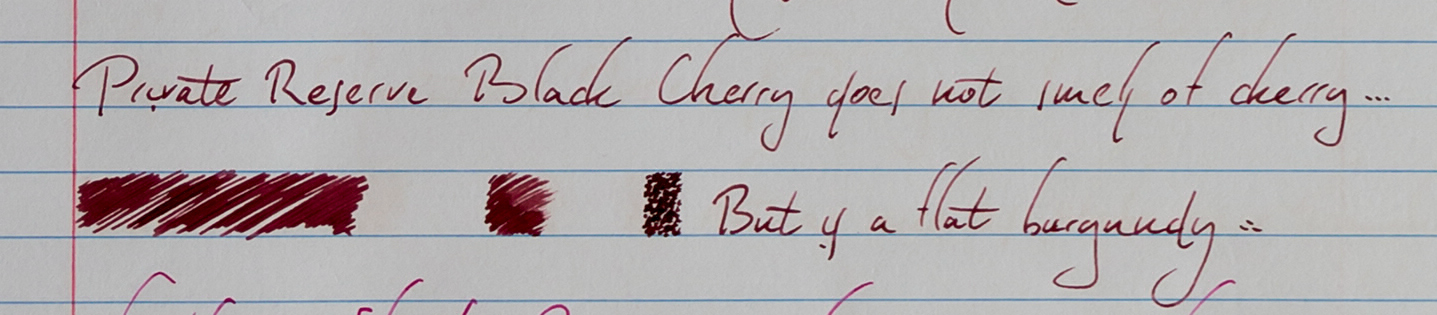 Private Reserve Black Cherry does not smell of cherry...
But is a flat burgundy